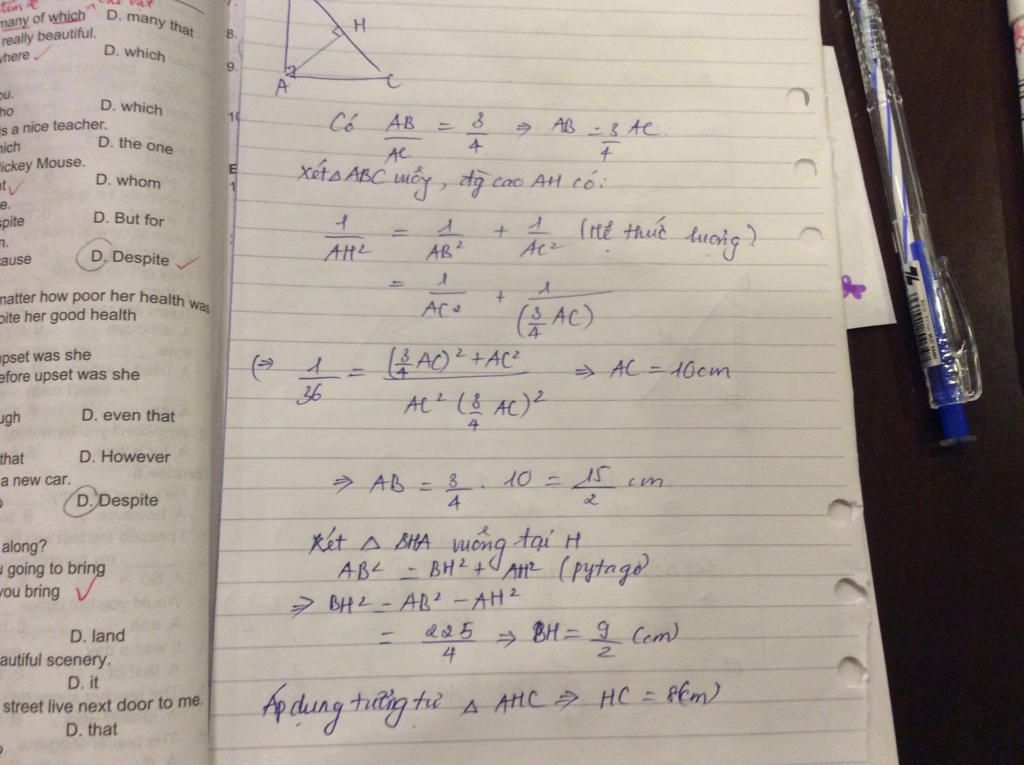 many of which D. many that
really beautiful.
where D. which
ou.
ho D. which
is a nice teacher.
hich D. the one
lickey Mouse.
at D. whom
e.
spite D. But for
n.
ause D. Despite
matter how poor her health was
pite her good health
upset was she
efore upset was she
ugh D. even that
that D. However
a new car.
D. Despite
along?
u going to bring
you bring
D. land
autiful scenery.
D. it
street live next door to me.
D. that
8.
9.
10
E
1
H
A C
Có AB/AC = 3/4 ⇒ AB = 3/4 AC.
Xét △ABC vuông, đg cao AH có:
1/AH² = 1/AB² + 1/AC² (Hệ thức lượng)
= 1/AC² + 1/(3/4 AC)
(⇒ 1/36 = ((3/4 AC)² + AC²)/(AC² (3/4 AC)²) ⇒ AC = 10cm
⇒ AB = 3/4 . 10 = 15/2 cm
Xét △ BHA vuông tại H
AB² = BH² + AH² (pytago)
⇒ BH² = AB² - AH²
= 225/4 ⇒ BH = 9/2 (cm)
Áp dụng tương tự △ AHC ⇒ HC = 8(cm)